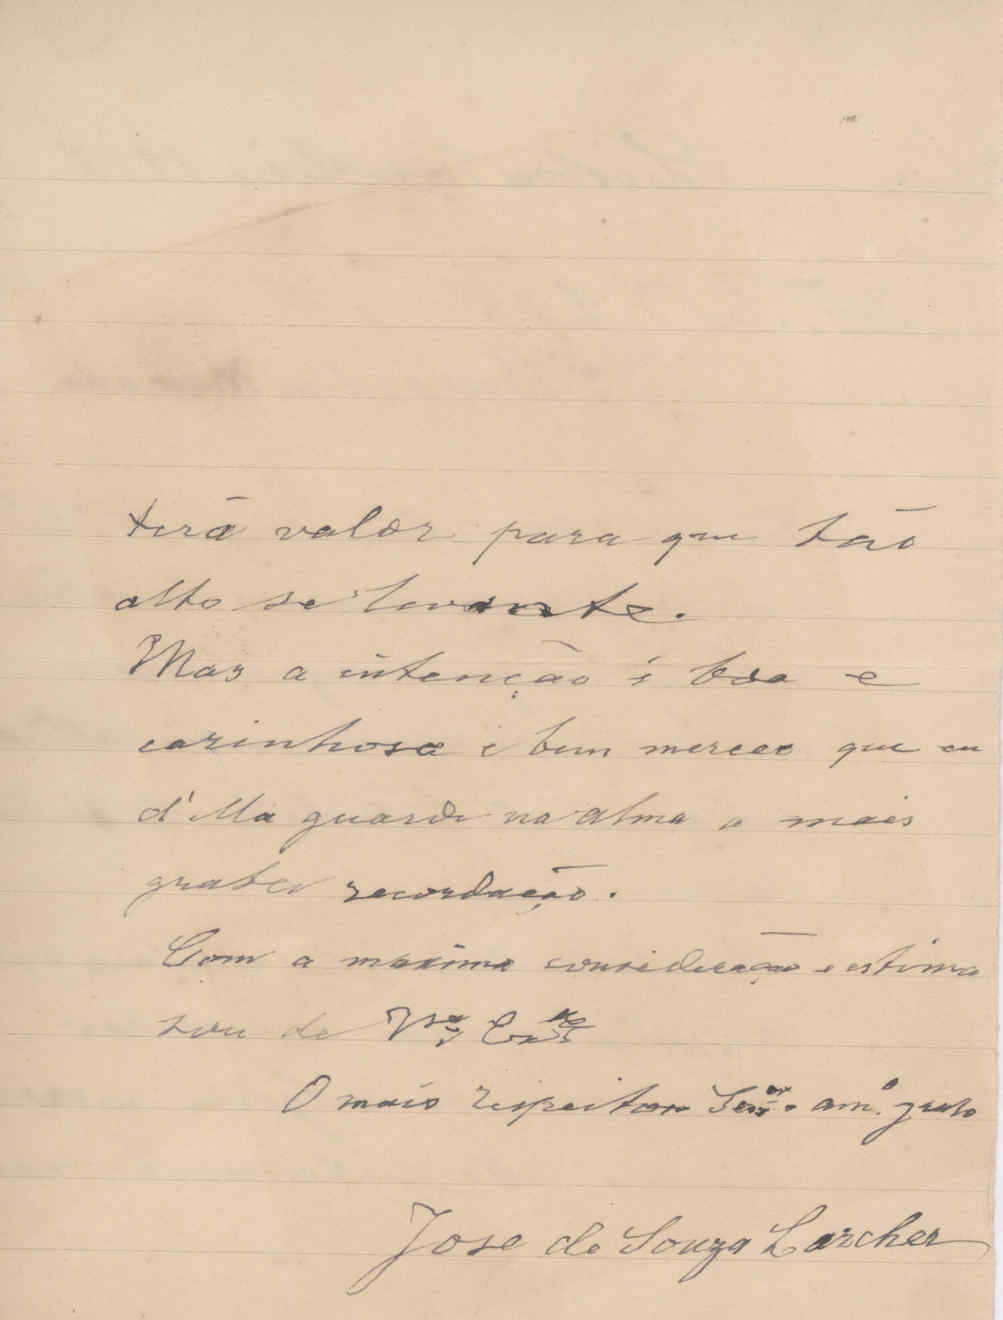 terá valor para que tão
alto se levante.
Mas a intenção é boa e
carinhosa e bem merece que eu
d'ella guarde na alma a mais
grata recordação.
Com a maxima consideração e estima
sou de Vª Exª
O mais respeitoso am.º grato
José de Souza Larcher